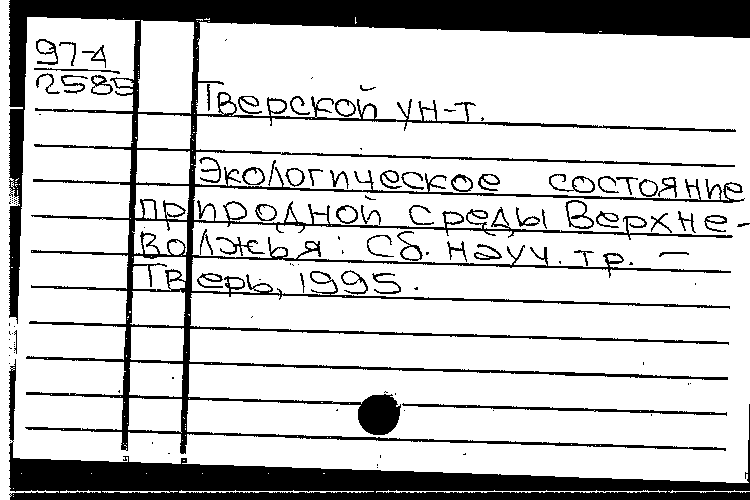 97-4
2585
Тверской ун-т.
Экологическое состояние
природной среды Верхне-
волжья: Сб. науч. тр. —
Тверь, 1995.